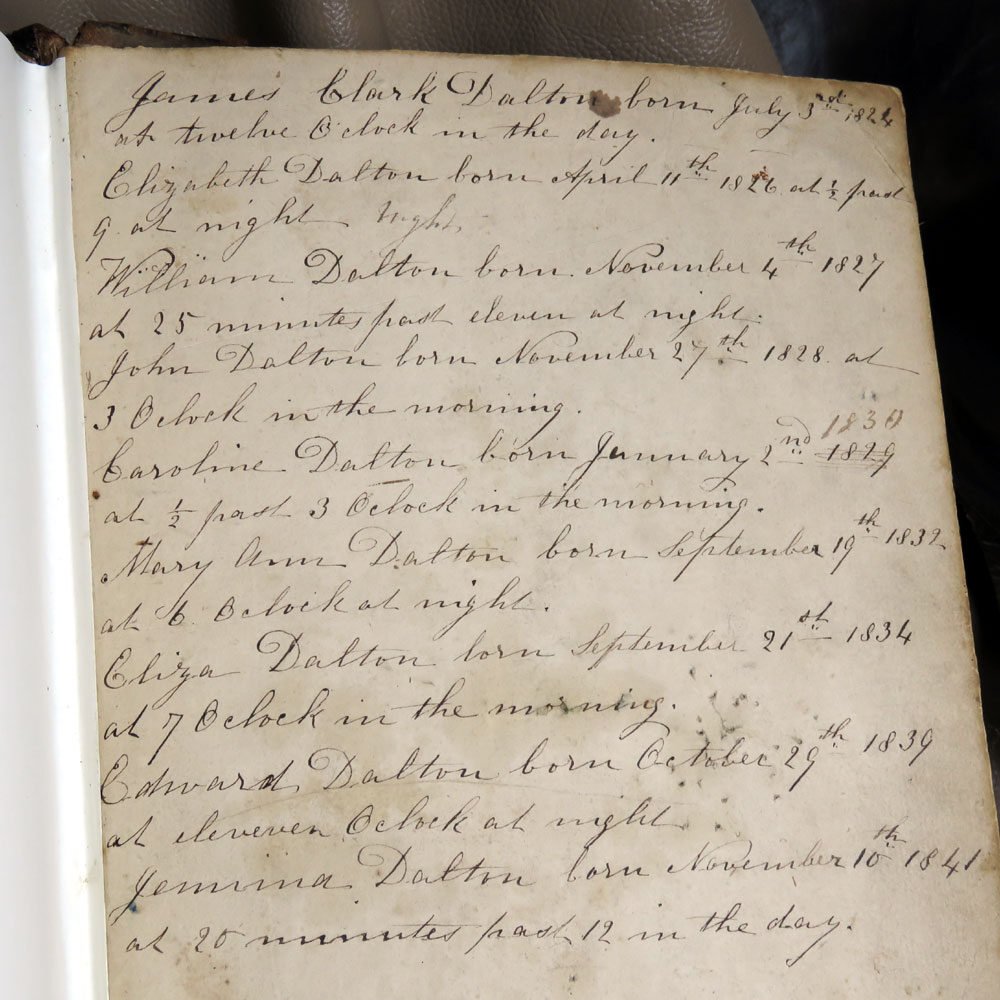 James Clark Dalton born July 3rd 1824
at twelve O'clock in the day.
Elizabeth Dalton born April 11th 1826 at ½ past
9 at night Night,
William Dalton born November 4th 1827
at 25 minutes past eleven at night.
John Dalton born November 27th 1828 at
3 Oclock in the morning.
Caroline Dalton born January 2nd 1829 1830
at ½ past 3 Oclock in the morning.
Mary Ann Dalton born September 19th 1832
at 6 Oclock at night.
Eliza Dalton born September 21st 1834
at 7 Oclock in the morning.
Edward Dalton born October 29th 1839
at eleveven Oclock at night
Jemima Dalton born November 10th 1841
at 20 minutes past 12 in the day.